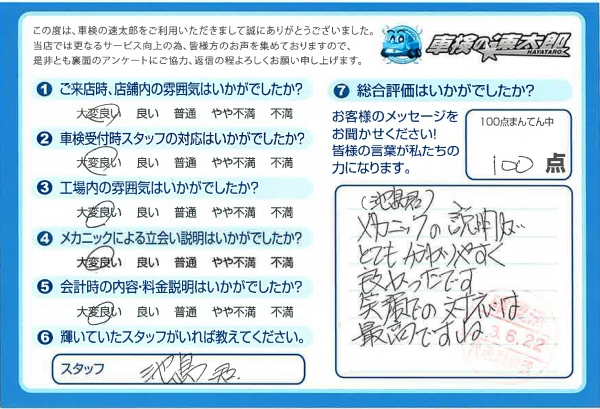 この度は、車検の速太郎をご利用いただきまして誠にありがとうございました。
当店では更なるサービス向上の為、皆様方のお声を集めておりますので、
是非とも裏面のアンケートにご協力、返信の程よろしくお願い申し上げます。
車検の速太郎
HAYATARO
1 ご来店時、店舗内の雰囲気はいかがでしたか?
大変良い 良い 普通 やや不満 不満
2 車検受付時スタッフの対応はいかがでしたか?
大変良い 良い 普通 やや不満 不満
3 工場内の雰囲気はいかがでしたか?
大変良い 良い 普通 やや不満 不満
4 メカニックによる立会い説明はいかがでしたか?
大変良い 良い 普通 やや不満 不満
5 会計時の内容・料金説明はいかがでしたか?
大変良い 良い 普通 やや不満 不満
6 輝いていたスタッフがいれば教えてください。
スタッフ 池島君
7 総合評価はいかがでしたか?
お客様のメッセージを
お聞かせください!
皆様の言葉が私たちの
力になります。
100点まんてん中
100 点
(池島君)
メカニックの説明が
とてもわかりやすく
良かったです
笑顔での対応は
最高ですね
3.6.22